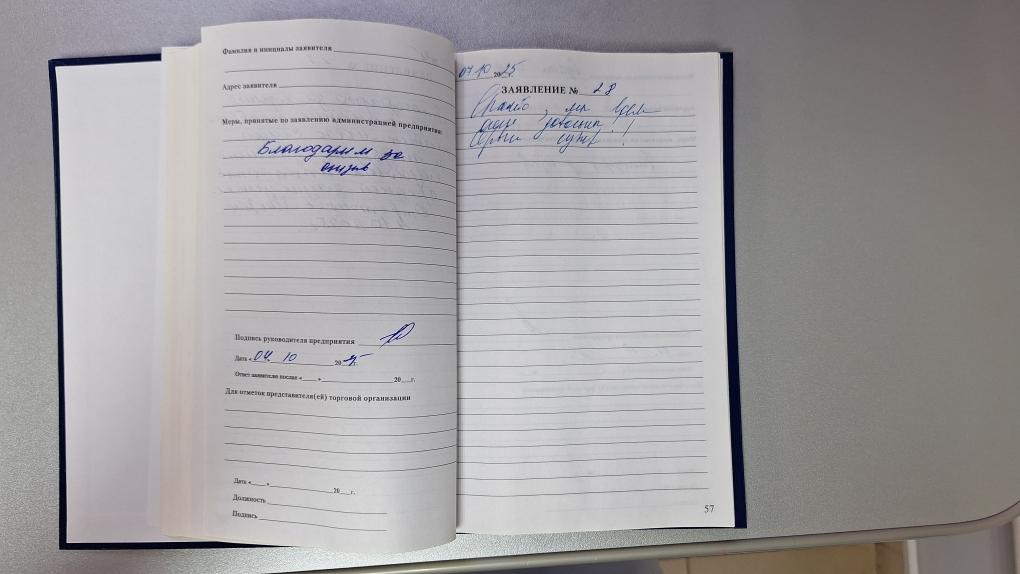 Фамилия и инициалы заявителя
Адрес заявителя
Меры, принятые по заявлению администрацией предприятия:
Благодарим за
отзыв
Подпись руководителя предприятия
Дата «04» 10 2025г.
Ответ заявителю послан «___» 20__г.
Для отметок представителя(ей) торговой организации
Дата «___» 20__г.
Должность
Подпись
07.10 2025г.
ЗАЯВЛЕНИЕ № 28
Спасибо, мы
супер!
57